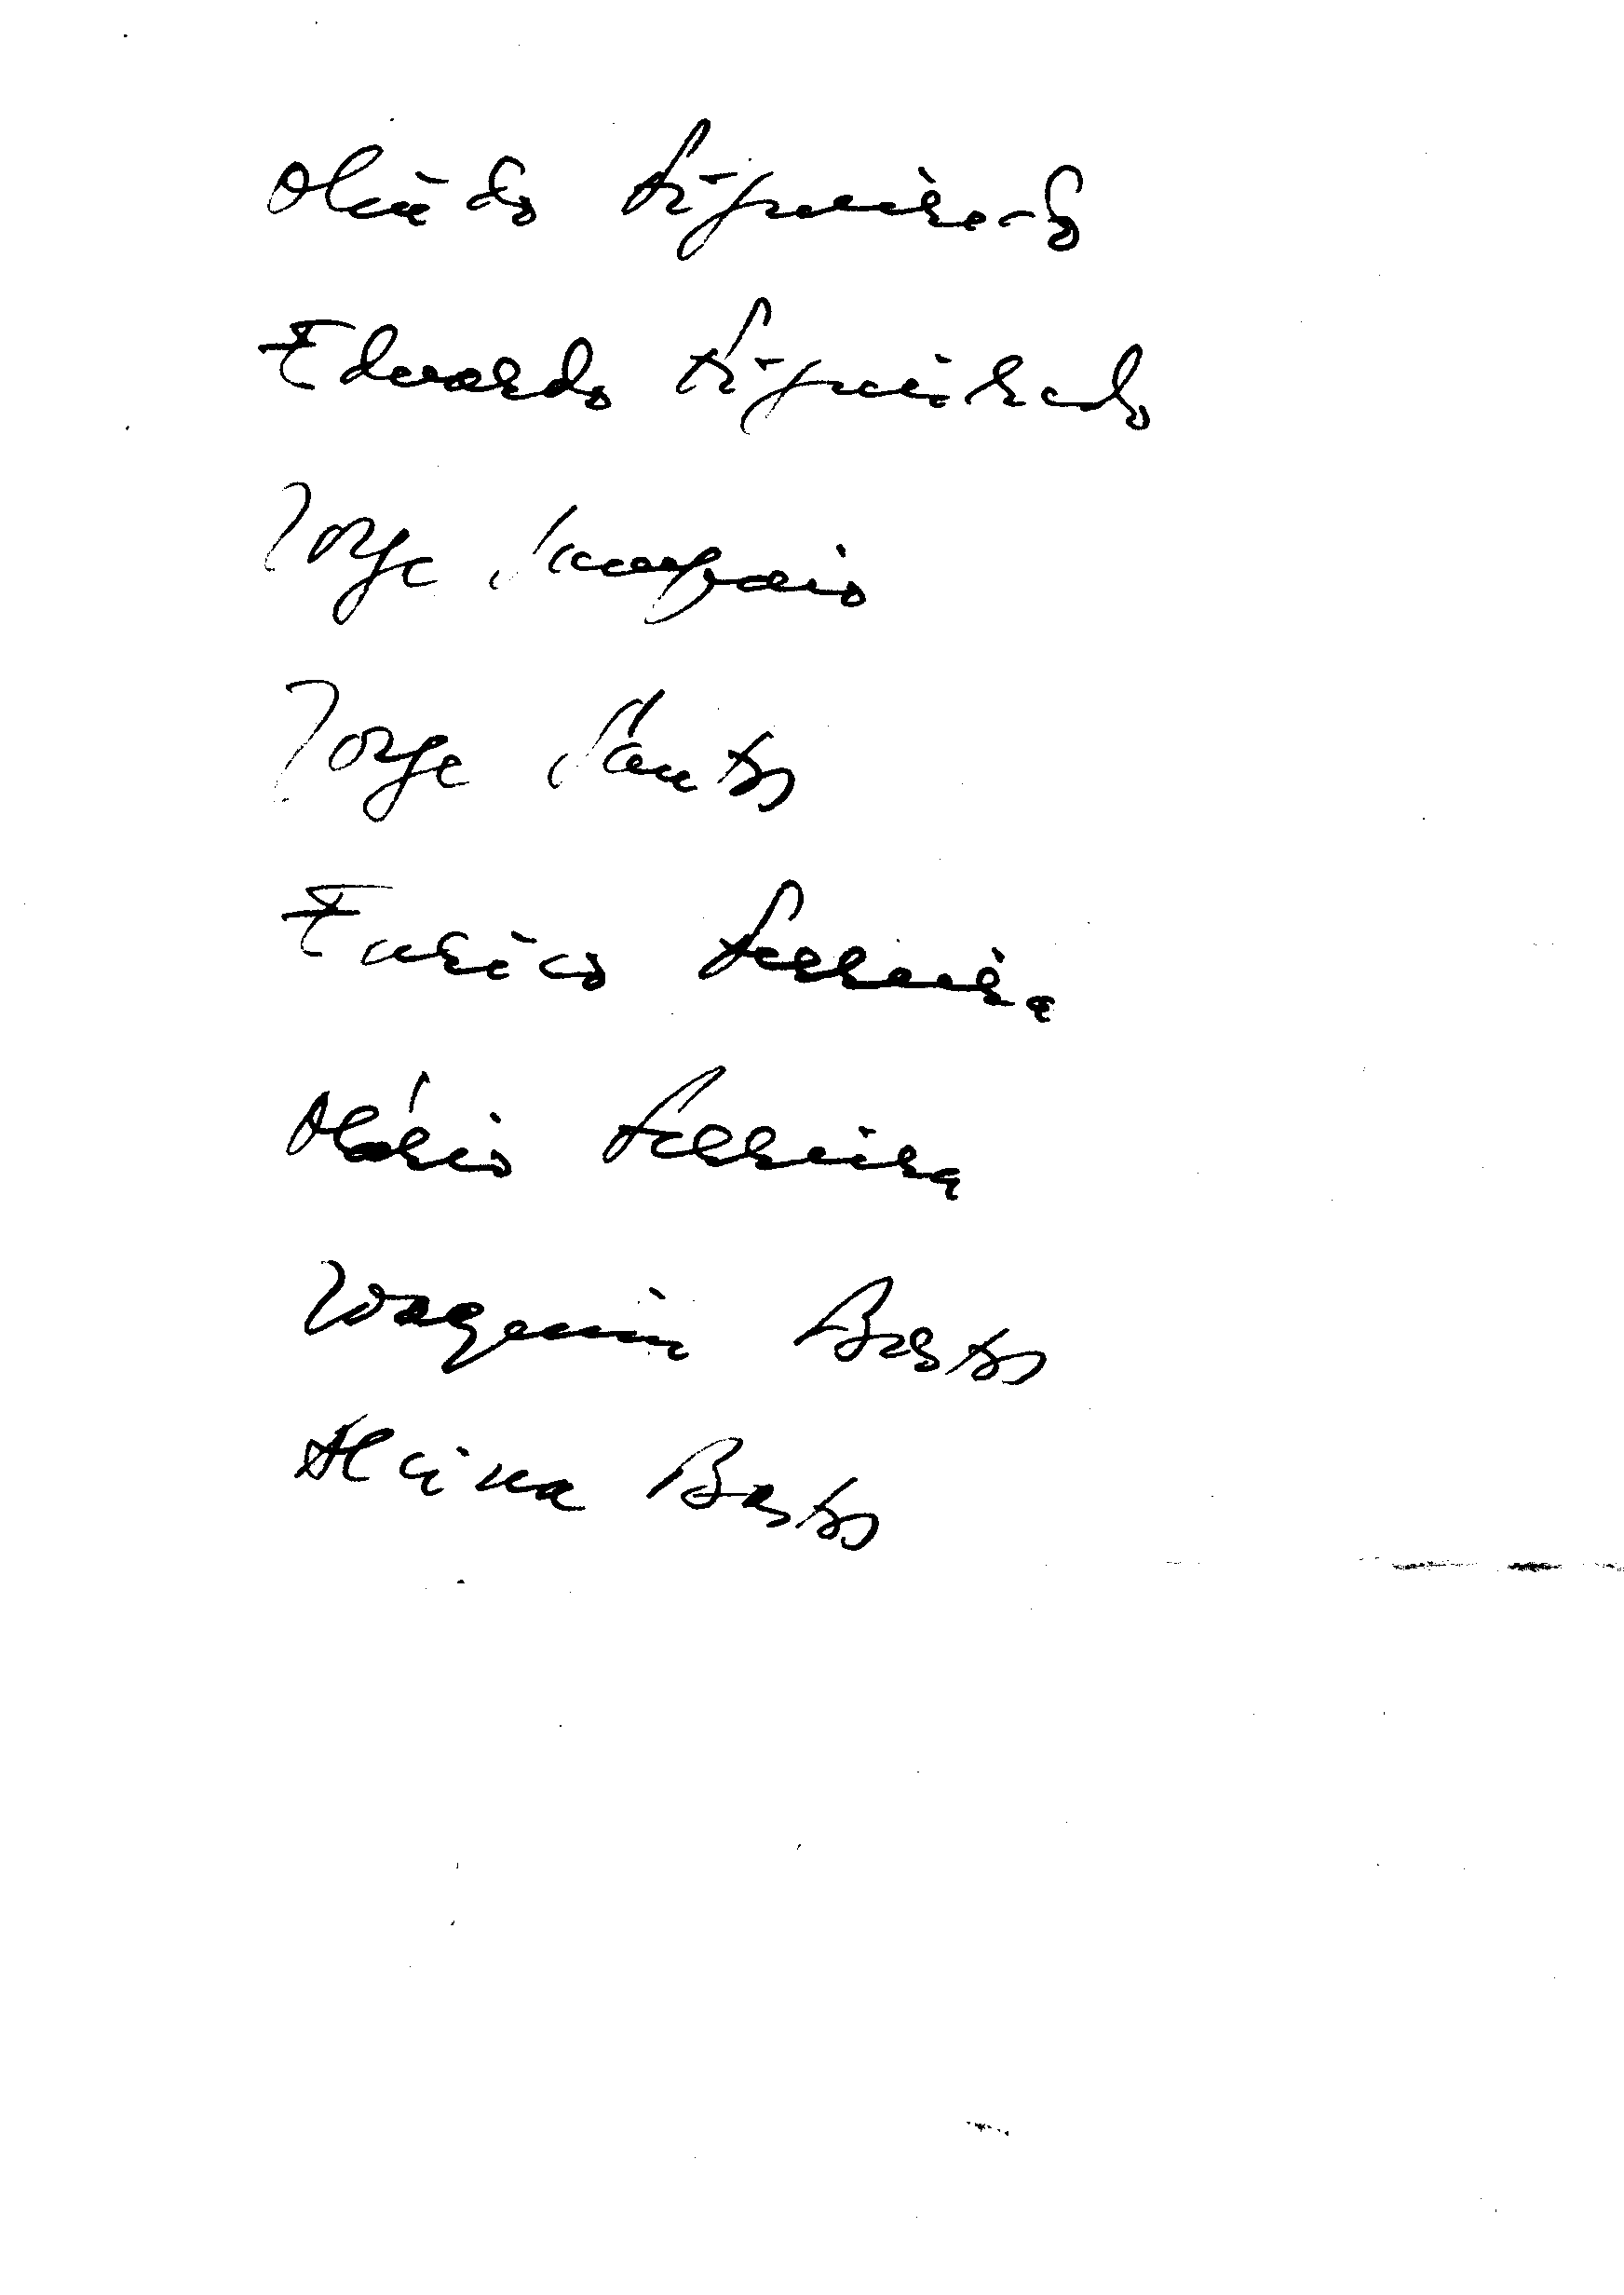 Alcindo Figueiredo
Eduardo Figueiredo
Jorge Sampaio
Jorge Santos
Eurico Ferreira
Mário Ferreira
Joaquim Bastos
Alcina Bastos